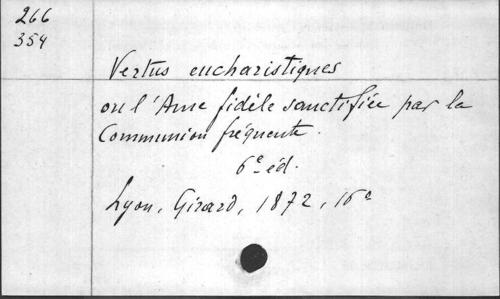 266
354
Vertus eucharistiques
ou l'Ame fidèle sanctifiée par la
Communion fréquente.
6e éd.
Lyon, Girard, 1872, 16°